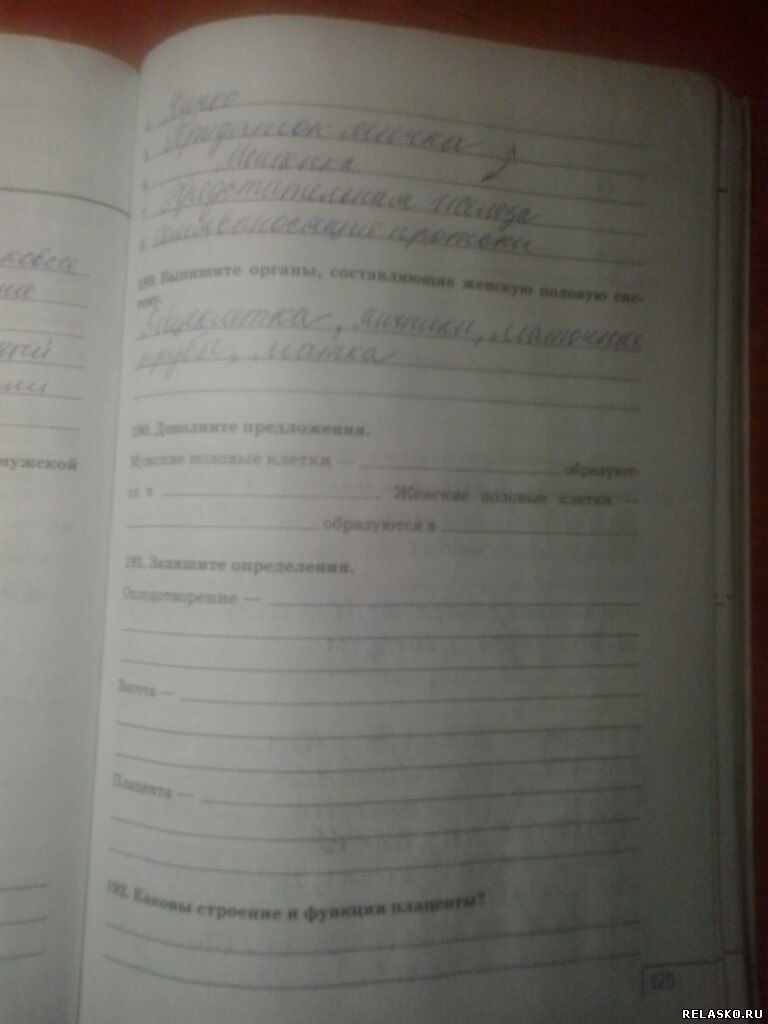 яичко
5. Придаток яичка
6. Мошонка
7. Предстательная железа
8. Семявыносящие протоки
189. Выпишите органы, составляющие женскую половую сис-
тему.
Яйцеклетка, яичники, маточные
трубы, матка
190. Дополните предложения.
Мужские половые клетки — образуют-
ся в . Женские половые клетки —
образуются в
191. Запишите определения.
Оплодотворение —
Зигота —
Плацента —
192. Каковы строение и функции плаценты?
125
мужской
RELASKO.RU